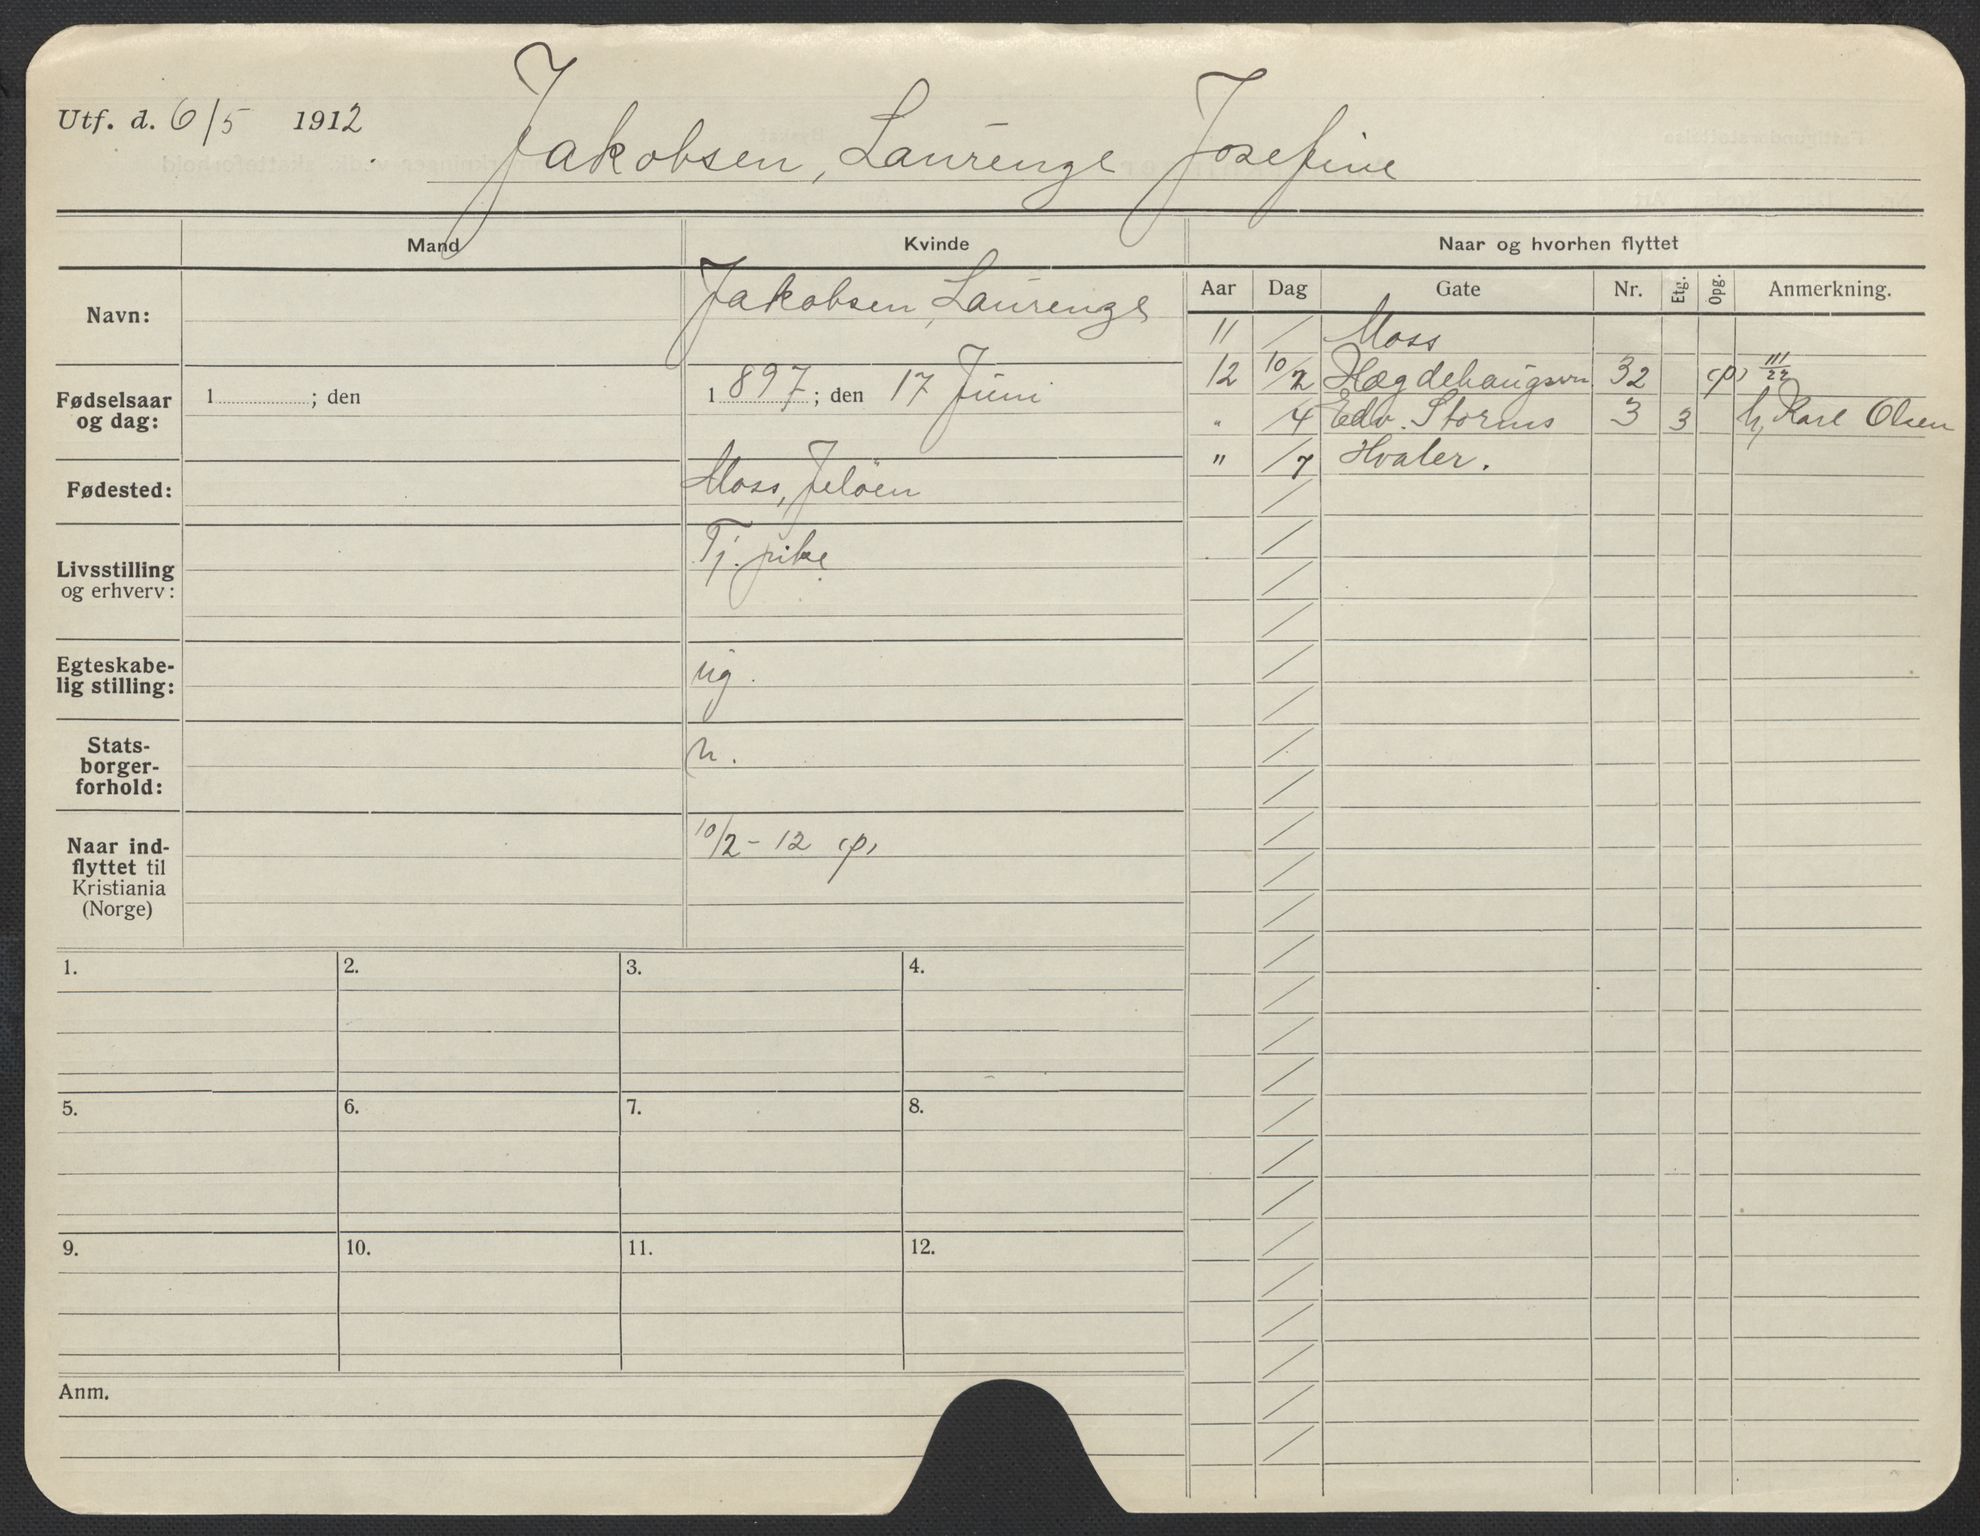 Utf. d. 6/5 1912
Jakobsen, Laurenze Josefine
Mand
Kvinde
Naar og hvorhen flyttet
Navn:
Jakobsen, Laurenze
Fødselsaar og dag:
1 ; den
1897; den 17 Juni
Fødested:
Moss, Jeløen
Livsstilling og erhverv:
Tj. pike
Egteskabelig stilling:
ug.
Statsborgerforhold:
n.
Naar indflyttet til Kristiania (Norge)
10/2 - 12 (p)
Aar Dag Gate Nr. Etg. Opg. Anmerkning.
11 / Moss
12 10/2 Hægdehaugsvn 32 (p) III/22
" /4 Edv. Storms 3 3 h, Karl Olsen
" /7 Hvaler.
1. 2. 3. 4.
5. 6. 7. 8.
9. 10. 11. 12.
Anm.